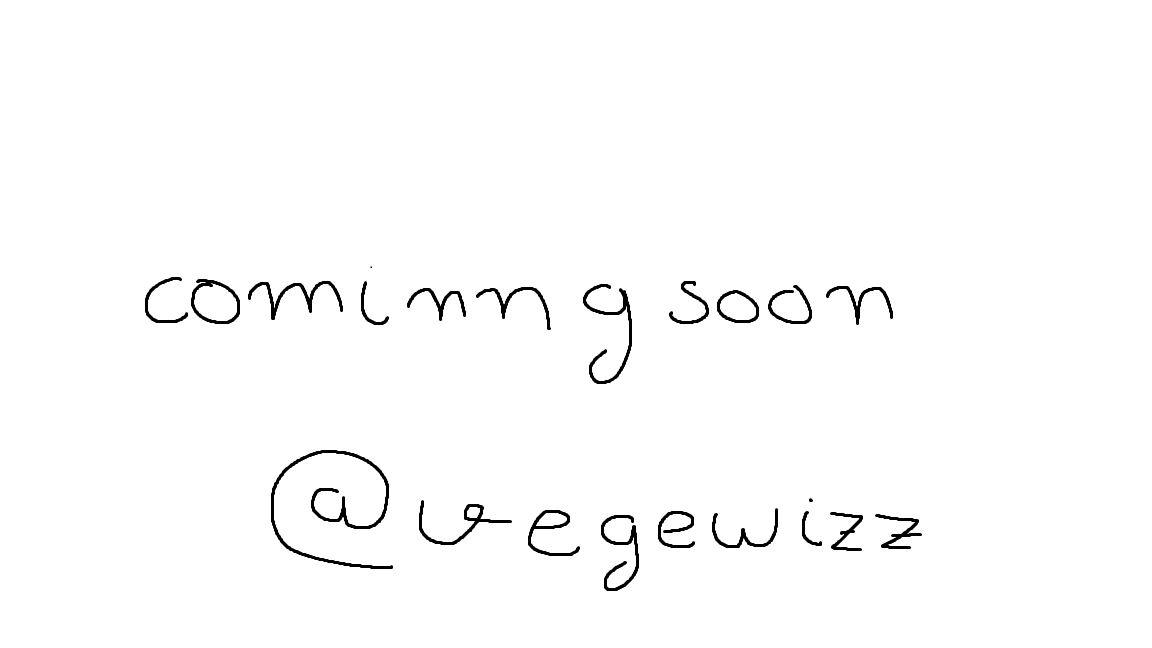 cominng soon
@vegewizz